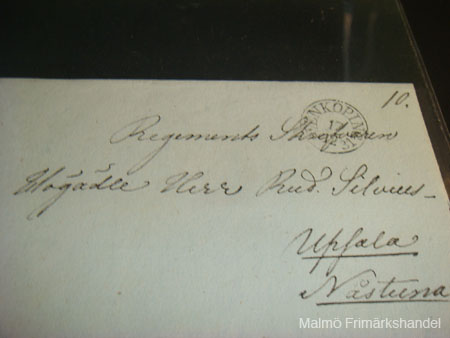 10.
ENKÖPING
17
Regements Skrifvaren
Högädle Herr Rud. Silvius
Upsala
Nåstuna
Malmö Frimärkshandel